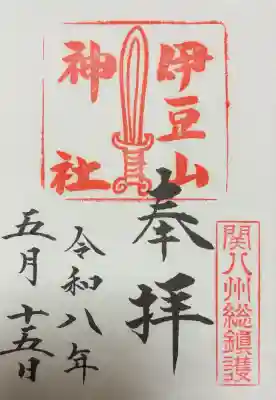 伊豆山
神社
奉拝
関八州総鎮護
令和八年
五月十五日